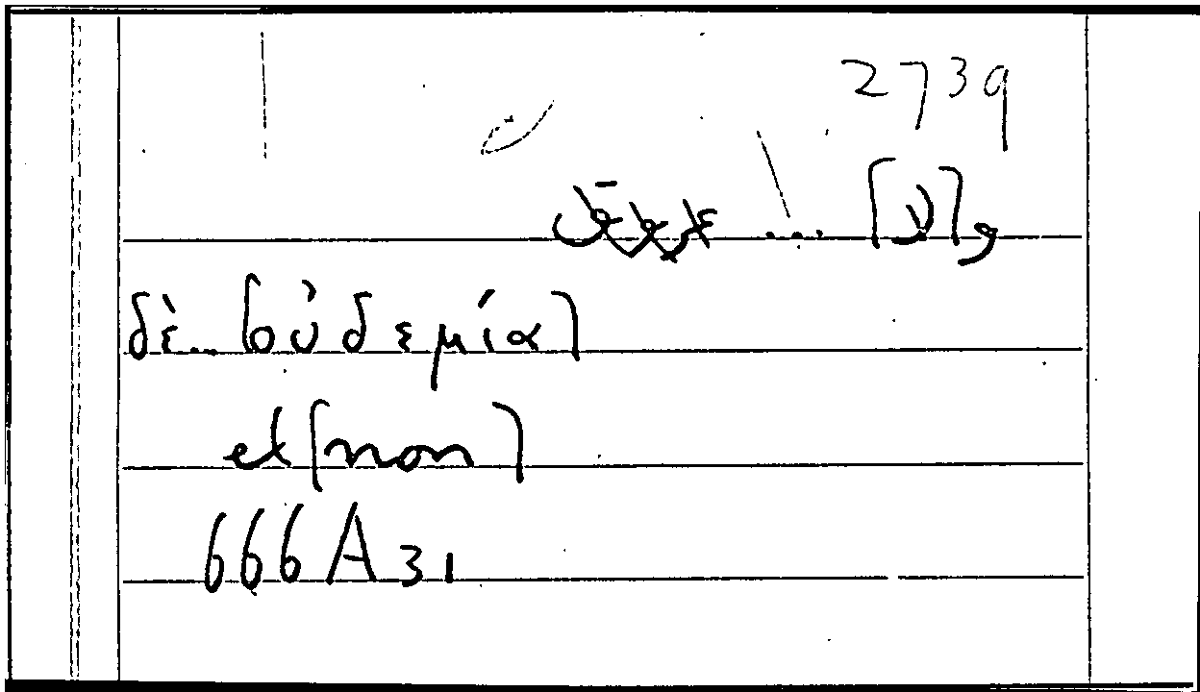 2739
و[لا] ...
δὲ... [οὐδεμία]
et [non]
666A31